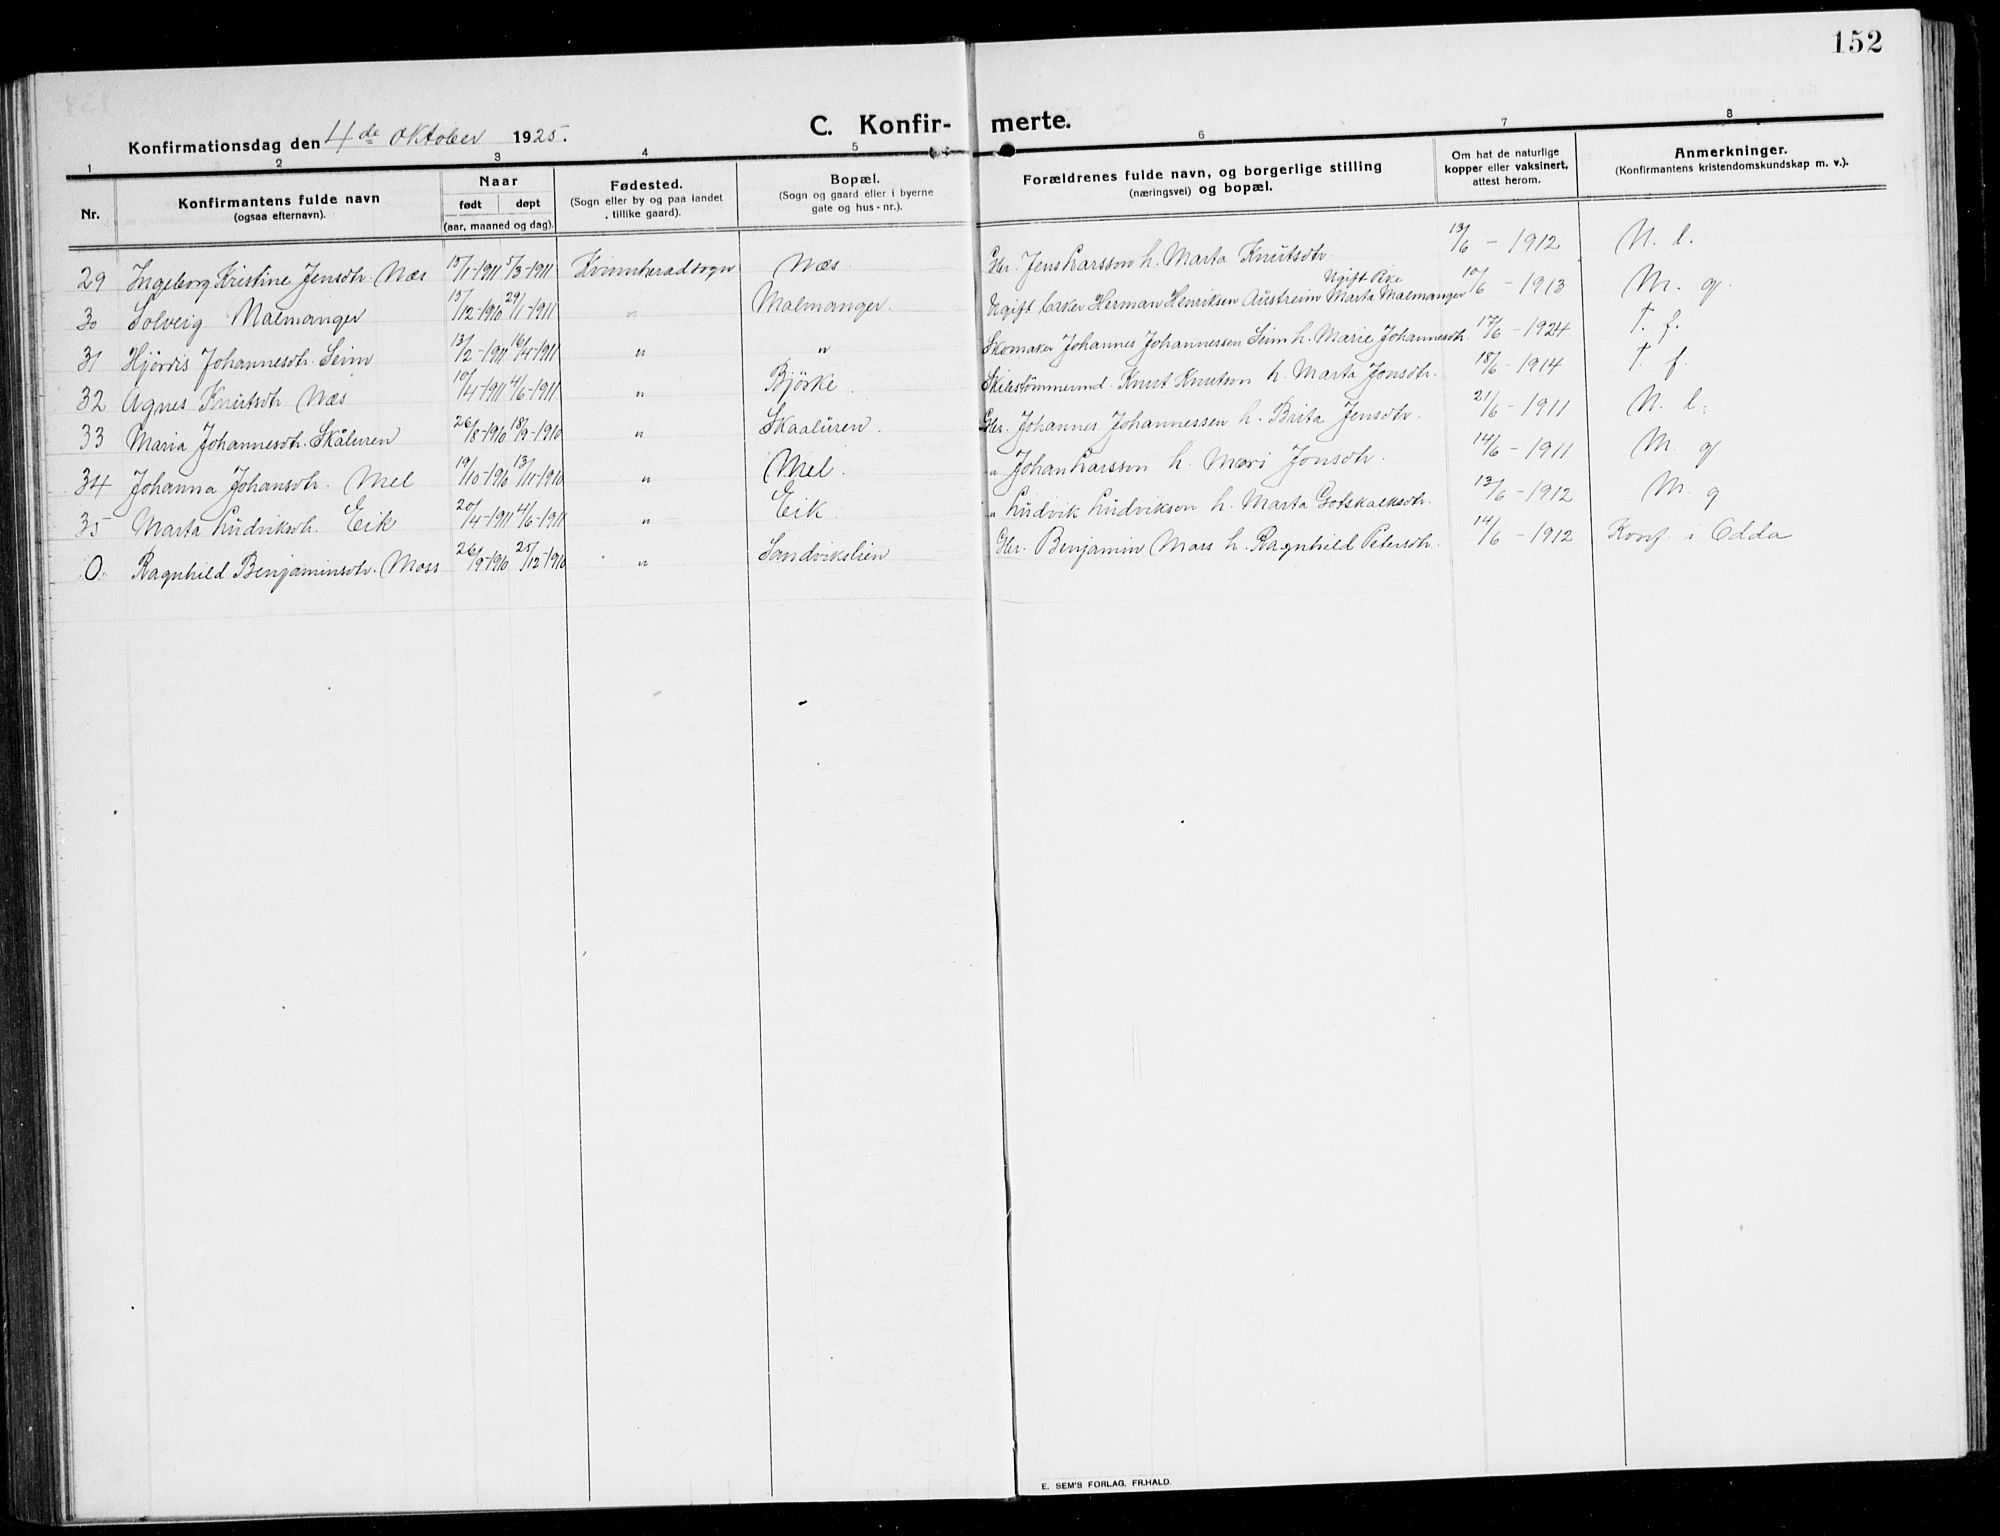 152
Konfirmationsdag den 4de oktober 1925.
C. Konfir- merte.
1 2 3 4 5 6 7 8
Nr.
Konfirmantens fulde navn
(ogsaa efternavn).
Naar
født døpt
(aar, maaned og dag).
Fødested.
(Sogn eller by og paa landet
tillike gaard).
Bopæl.
(Sogn og gaard eller i byerne
gate og hus-nr.).
Forældrenes fulde navn, og borgerlige stilling
(næringsvei) og bopæl.
Om hat de naturlige
kopper eller vaksinert,
attest herom.
Anmerkninger.
(Konfirmantens kristendomskundskap m. v.).
29 Ingeborg Kristine Jensdtr. Næs 15/1-1911 5/3-1911 Kvinnherad sogn Næs. Gbr. Jens Larsson h. Marta Knutsdtr. 13/6 - 1912 N. l.
30 Solveig Malmanger 15/12-1910 29/1-1911 " Malmanger. Ugift Herman Henriksen Austreim Ugift Pike Marta Malmanger 10/6 - 1913 M. g.
31 Hjördis Johannesdtr. Seim 13/2-1911 16/4-1911 " " Skomaker Johannes Johannessen Seim h. Marie Johannesdtr. 17/6 - 1924 T. f.
32 Agnes Knutsdtr Næs 10/4-1911 4/6-1911 " Bjørke. Knut Knutsen h. Marta Jonsdtr. 18/6 - 1914 T. f.
33 Maria Johannesdtr. Skåluren 26/8-1910 18/9-1910 " Skaaluren. Gbr. Johannes Johannessen h. Brita Jensdtr. 21/6 - 1911 N. l.
34 Johanna Johansdtr. Mel 19/10-1910 13/11-1910 " Mel. " Johan Larsson h. Mari Jonsdtr. 14/6 - 1911 M. g
35 Marta Ludviksdtr. Eik 20/4-1911 4/6-1911 " Eik. " Ludvik Ludvikson h. Marta Gotskalksdtr. 13/6 - 1912 M. g
0. Ragnhild Benjaminsdtr. Moss 26/9-1910 25/12-1910 " Sandvikslien Gbr. Benjamin Mars h. Ragnhild Petersdtr. 14/6 - 1912 Konf. i Odda
E. SEM'S FORLAG, FR.HALD.